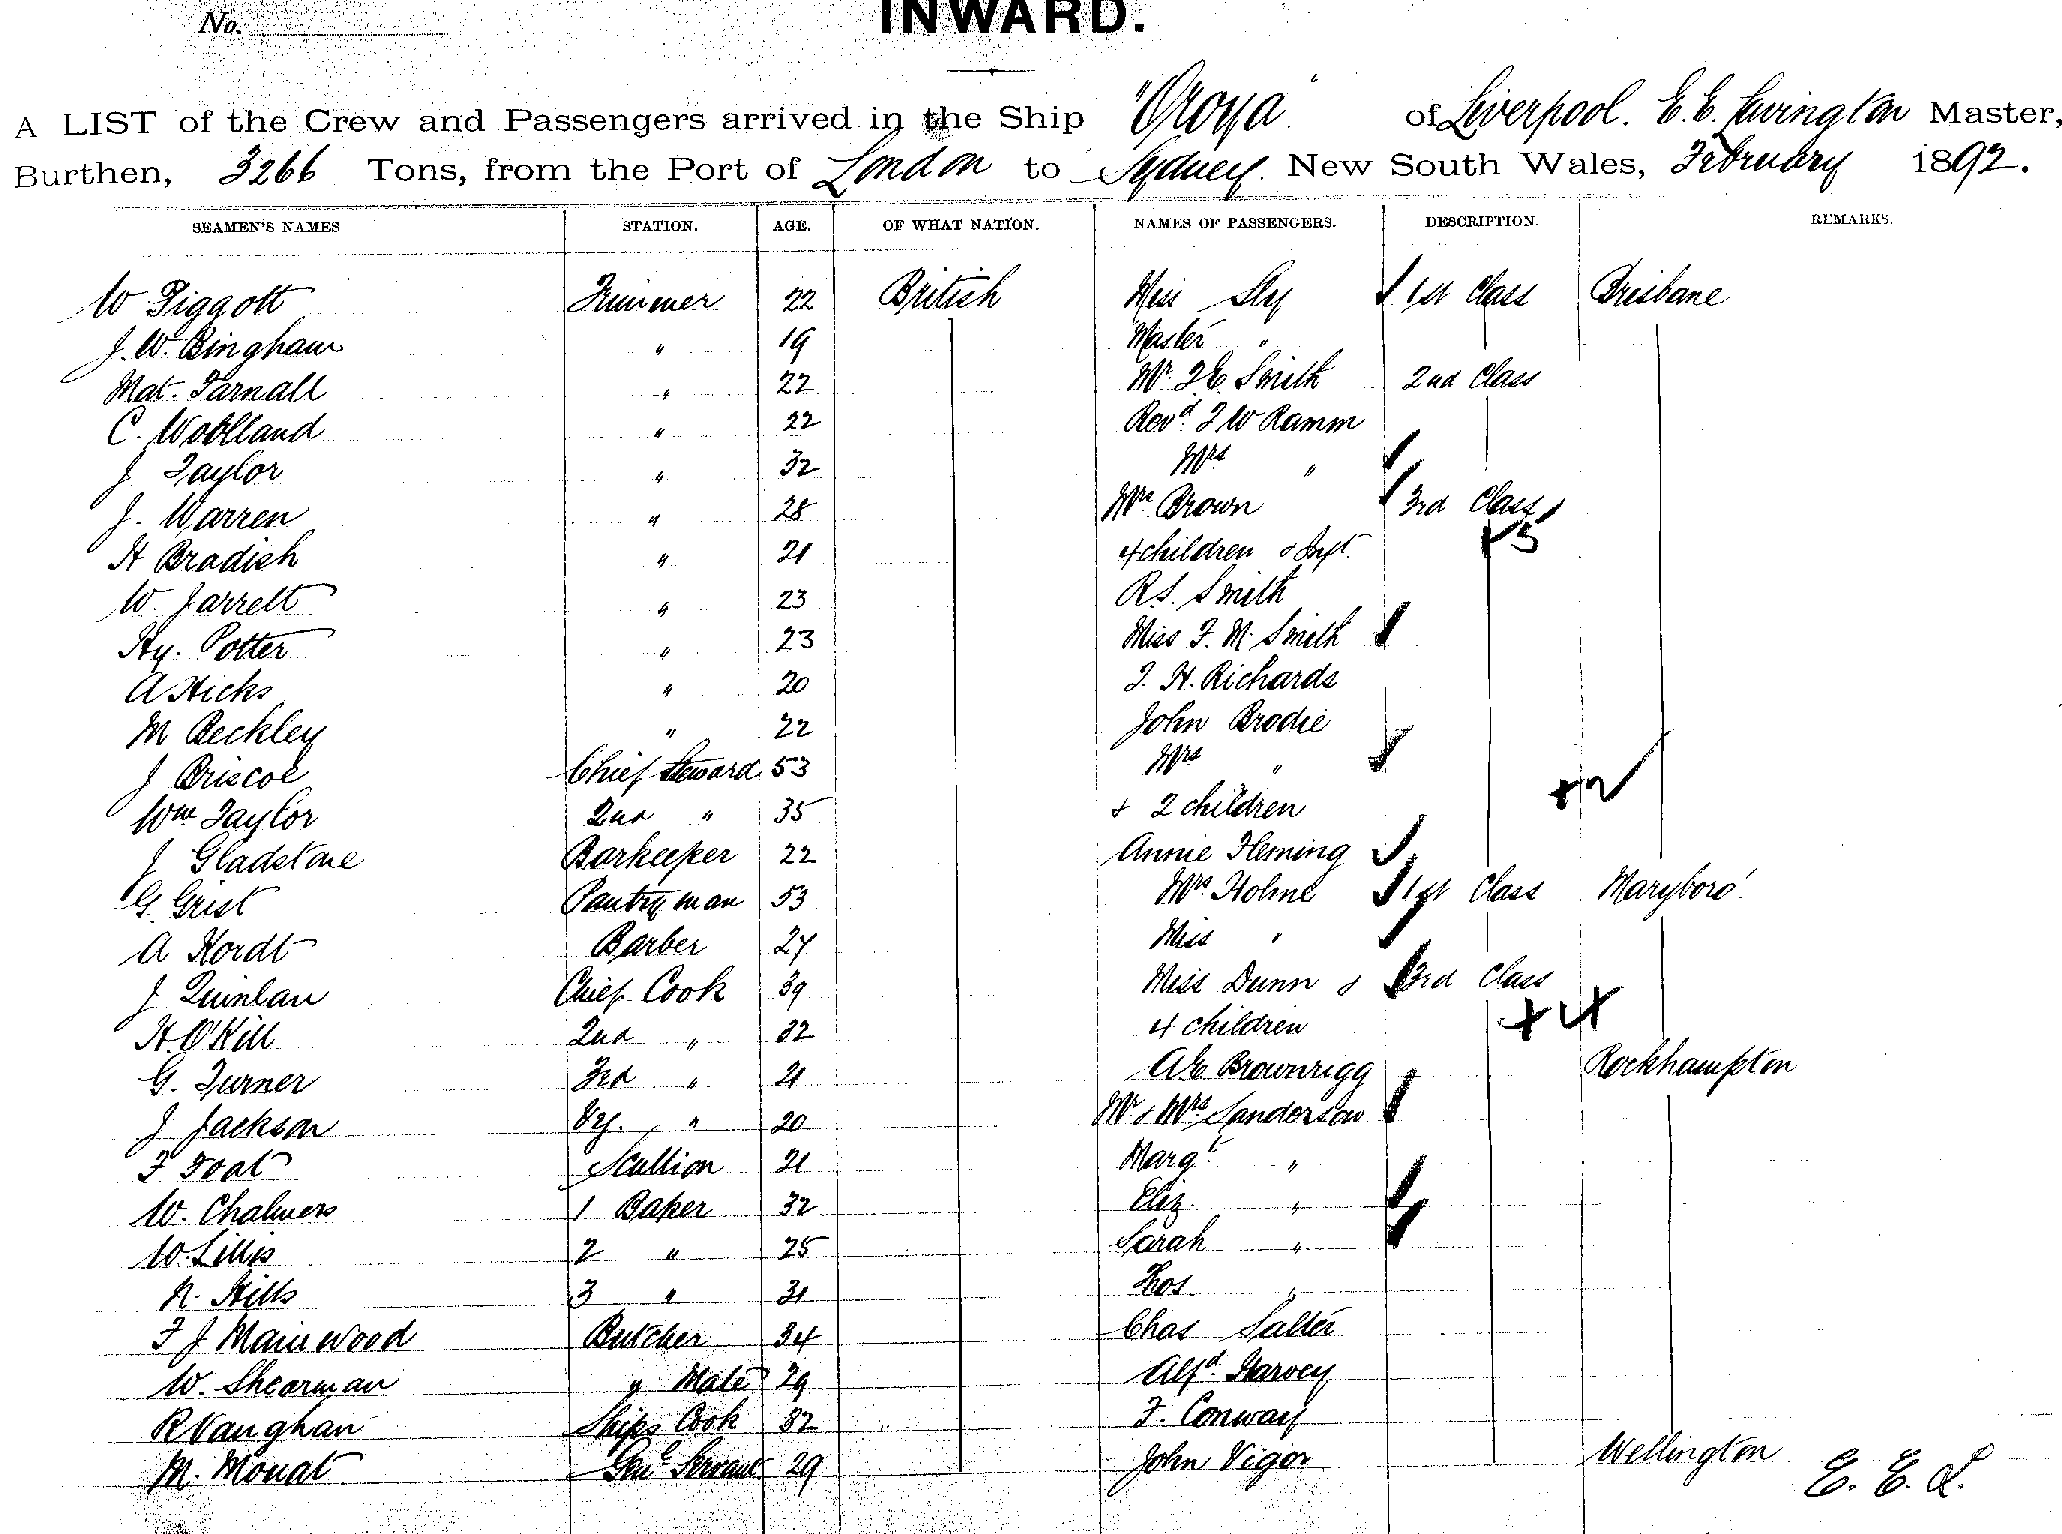 No.
INWARD.
A LIST of the Crew and Passengers arrived in the Ship "Oroya" of Liverpool. E. E. Lavington Master,
Burthen, 3266 Tons, from the Port of London to Sydney. New South Wales, February 1892.
SEAMEN'S NAMES STATION. AGE. OF WHAT NATION. NAMES OF PASSENGERS. DESCRIPTION. REMARKS.
W Piggott Trimmer 22 British Miss Sly 1st Class Brisbane
J. W. Bingham " 19 Master "
Mat. Tarnall " 22 Mr. J E Smith 2nd Class
C. Woolland " 22 Revd. J W Ramm
J Taylor " 32 Mrs "
J. Warren " 28 Mrs Brown 3rd Class
H Bradish " 21 4 children & Inft. +5
W. Jarrett " 23 R S. Smith
Hy. Potter " 23 Miss F. M. Smith
A Hicks " 20 J. H. Richards
M Beckley " 22 John Brodie
J Briscoe Chief Steward 53 Mrs "
Wm Taylor 2nd " 35 & 2 children +2
J Gladstone Barkeeper 22 Annie Fleming
G. Grist Pantryman 53 Mrs Holme 1st Class Maryboro'
A Hordt Barber 27 Miss "
J Quinlan Chief Cook 39 Miss Dunn & 3rd Class
H. O'Kill 2nd " 32 4 children +4
G. Turner 3rd " 21 A E Brownrigg Rockhampton
J Jackson Vy. " 20 Mr & Mrs Sanderson
F Foat Scullion 21 Margt "
W. Chalmers 1 Baker 32 Eliz. "
W. Lillis 2 " 25 Sarah "
N. Hills 3 " 31 Thos "
F J Mainwood Butcher 34 Chas Salter
W. Shearman " Mate 29 Alfd. Harvey
R Vaughan Ships Cook 32 F. Conway
M. Mouat Genl Servant 29 John Vigor Wellington
E. E. L.